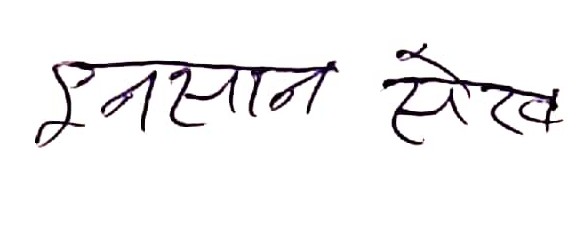 इनसान सेख